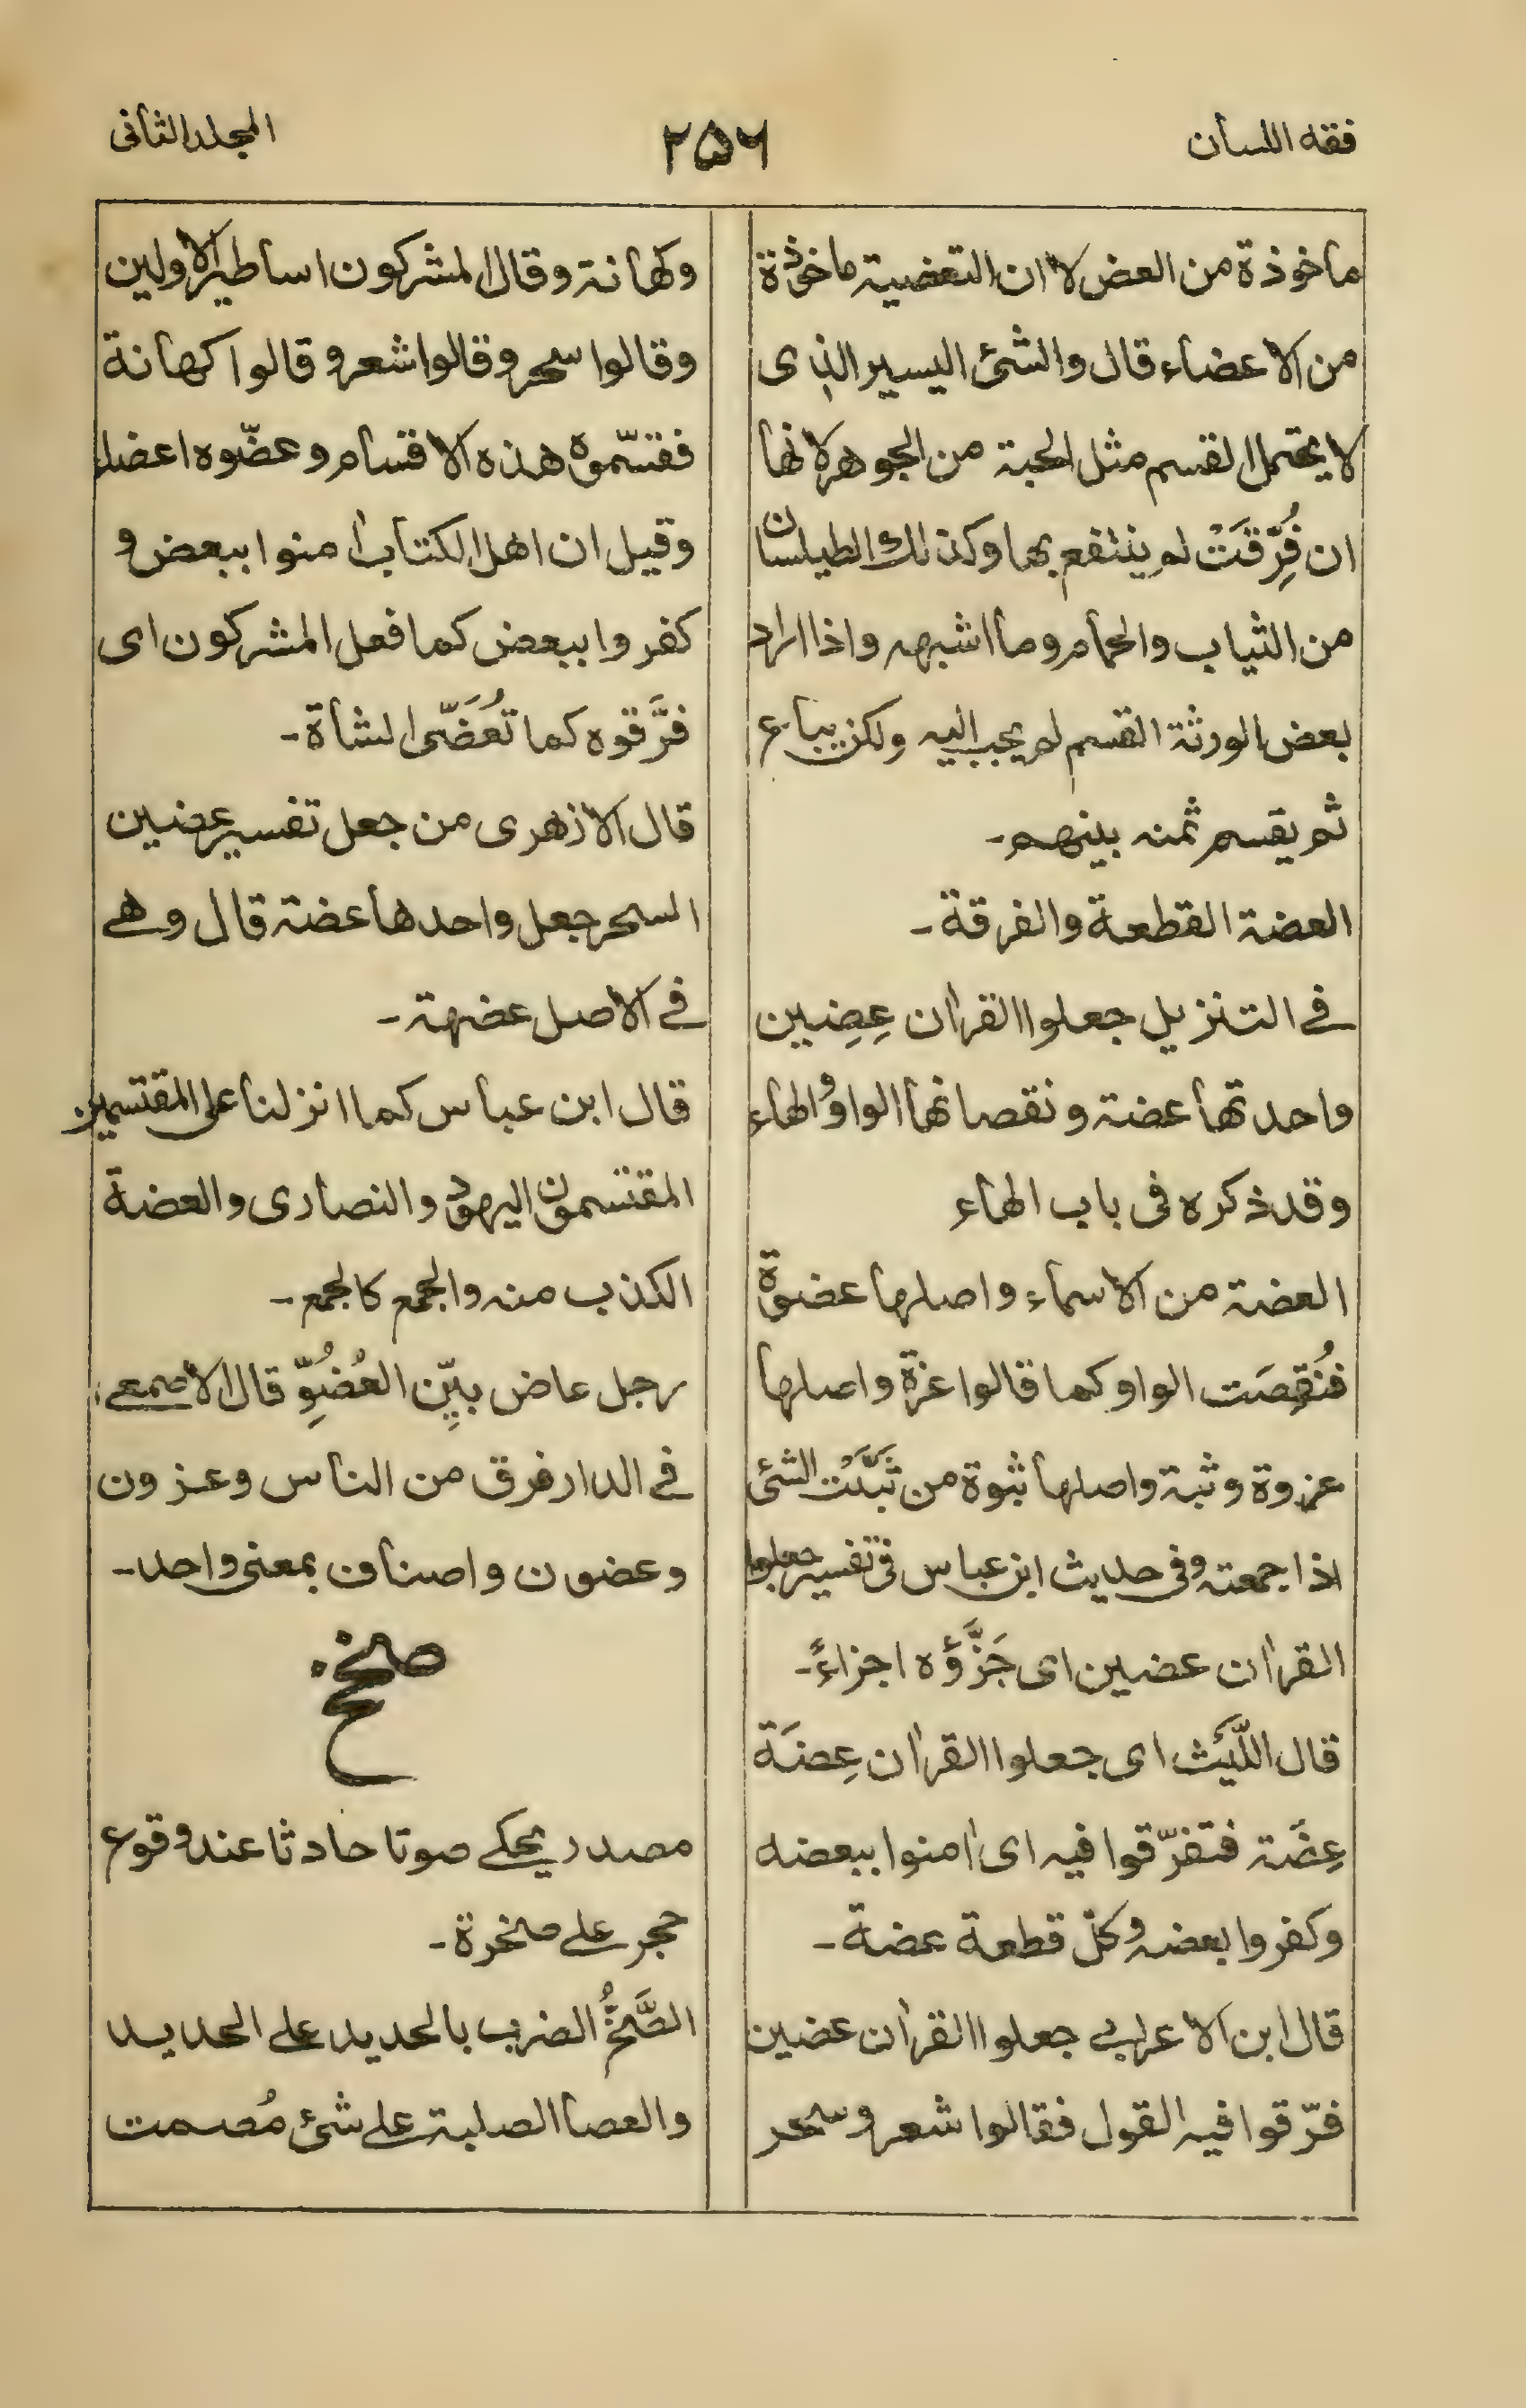 فقه اللسان
٢٥٦
المجلد الثانى
ماخوذة من العض لا ان التعضية ماخوذة
من الاعضاء قال والشئ اليسير الذى
لا يحتمل القسم مثل الحبة من الجوهر لانها
ان فُرِّقَتْ لم ينتفع بها وكذلك الطيلسان
من الثياب والحمام وما اشبهه واذا اراد
بعض الورثة القسم لم يجب اليه ولكن يباع
ثم يقسم ثمنه بينهم ـ
العضة القطعة والفرقة ـ
فى التنزيل جعلوا القراٰن عِضِين
واحدتها عضة ونقصانها الواو والهاء
وقد ذكره فى باب الهاء
العضة من الاسماء واصلها عضوة
فنُقِصَت الواو كما قالوا عزة واصلها
عزوة وثبة واصلها ثبوة من ثَبَّيْت الشئ
اذا جمعته وفى حديث ابن عباس فى تفسير جعلوا
القراٰن عضين اى جَزَّؤُه اجزاءً ـ
قال اللَّيث اى جعلوا القراٰن عِضَة
عِضَة فتفرّقوا فيه اى اٰمنوا ببعضه
وكفروا بعضه وكلّ قطعة عضة ـ
قال ابن الاعرابى جعلوا القراٰن عضين
فرّقوا فيه القول فقالوا شعر وسحر
وكهانة وقال المشركون اساطير الاولين
وقالوا سحر وقالوا شعر وقالوا كهانة
فقسّموه هذه الاقسام وعضّوه اعضاء
وقيل ان اهل الكتاب اٰمنوا ببعض و
كفروا ببعض كما فعل المشركون اى
فرَّقوه كما تُعَضّى الشاة ـ
قال الازهرى من جعل تفسير عضين
السحر جعل واحدها عضة قال وهى
فى الاصل عضهة ـ
قال ابن عباس كما انزلنا على المقتسمين
المقتسمون اليهود والنصارى والعضة
الكذب منه والجمع كالجمع ـ
رجل عاض بيِّن العُضُوِّ قال الاصمعى:
فى الدار فرق من الناس وعزون
وعضون واصناف بمعنى واحد ـ
صخ
مصدر يحكى صوتا حادثا عند وقوع
حجر على صخرة ـ
الصَّخُّ الضرب بالحديد على الحديد
والعصا الصلبة على شئ مُصمت